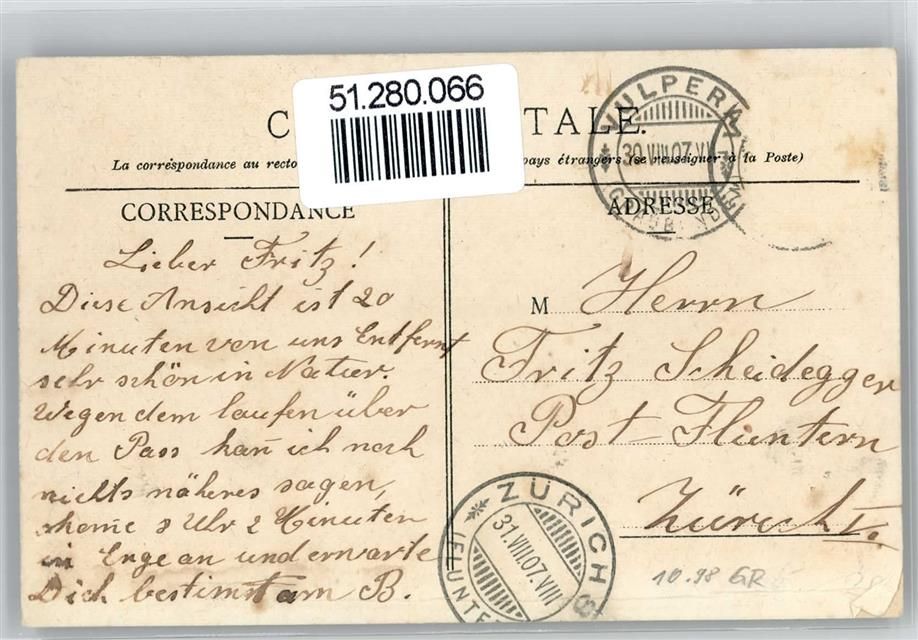 51.280.066
C TALE.
La correspondance au recto pays étrangers (se renseigner à la Poste)
CORRESPONDANCE
ADRESSE
VULPERA
30.VIII.07.VI
Lieber Fritz!
Diese Ansicht ist 20
Minuten von uns Entfernt
sehr schön in Natur.
Wegen dem laufen über
den Pass kan̄ ich noch
nichts näheres sagen,
kom̄e 8 Uhr 2 Minuten
in Enge an und erwarte
Dich bestimmt am B.
M Herrn
Fritz Scheidegger
Post-Fluntern
Zürich V.
ZÜRICH 8
31.VIII.07.VIII
(FLUNTE
10.98 GR